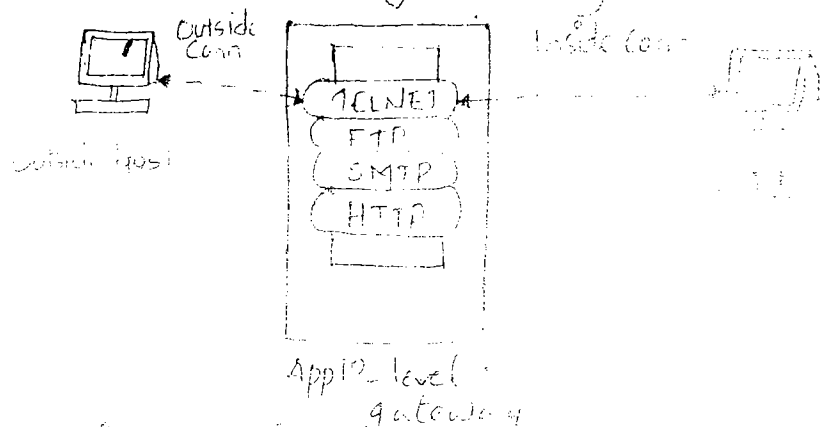 Outside
Conn
Inside Conn
TELNET
FTP
SMTP
HTTP
Outside host
Appln level
gateway